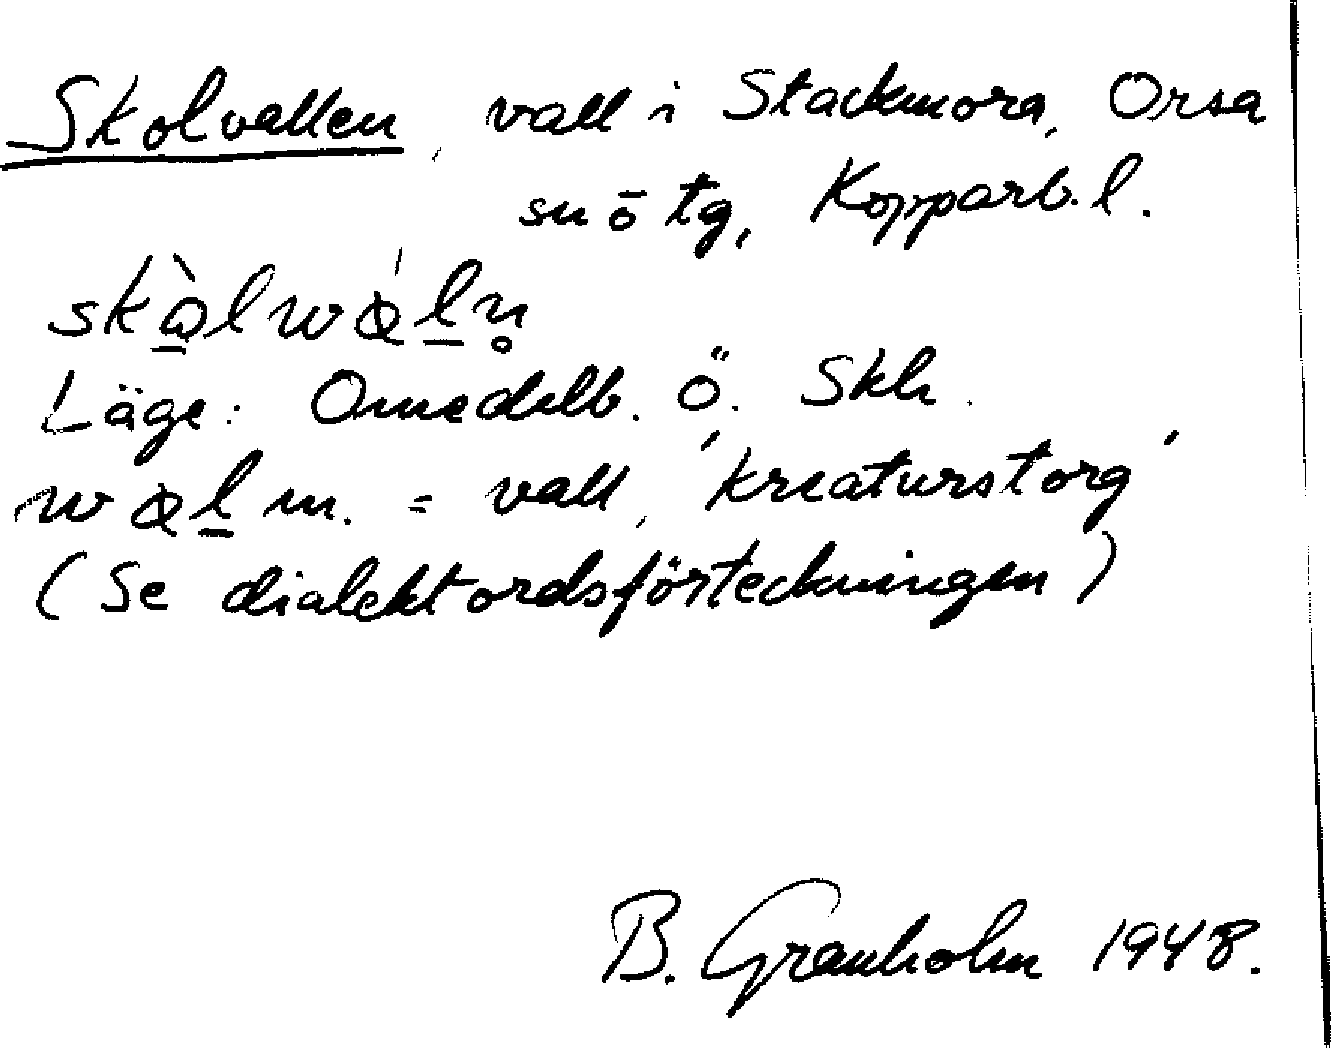 Skolvallen, vall i Stackmora, Orsa
sn ö tg, Kopparb. l.
skòlwa̍ḻn̥
Läge: Omedelb. Ö. Skh.
waḻ m. = vall, 'kreaturstorg'
(Se dialektordsförteckningen)
B. Granholm 1948.